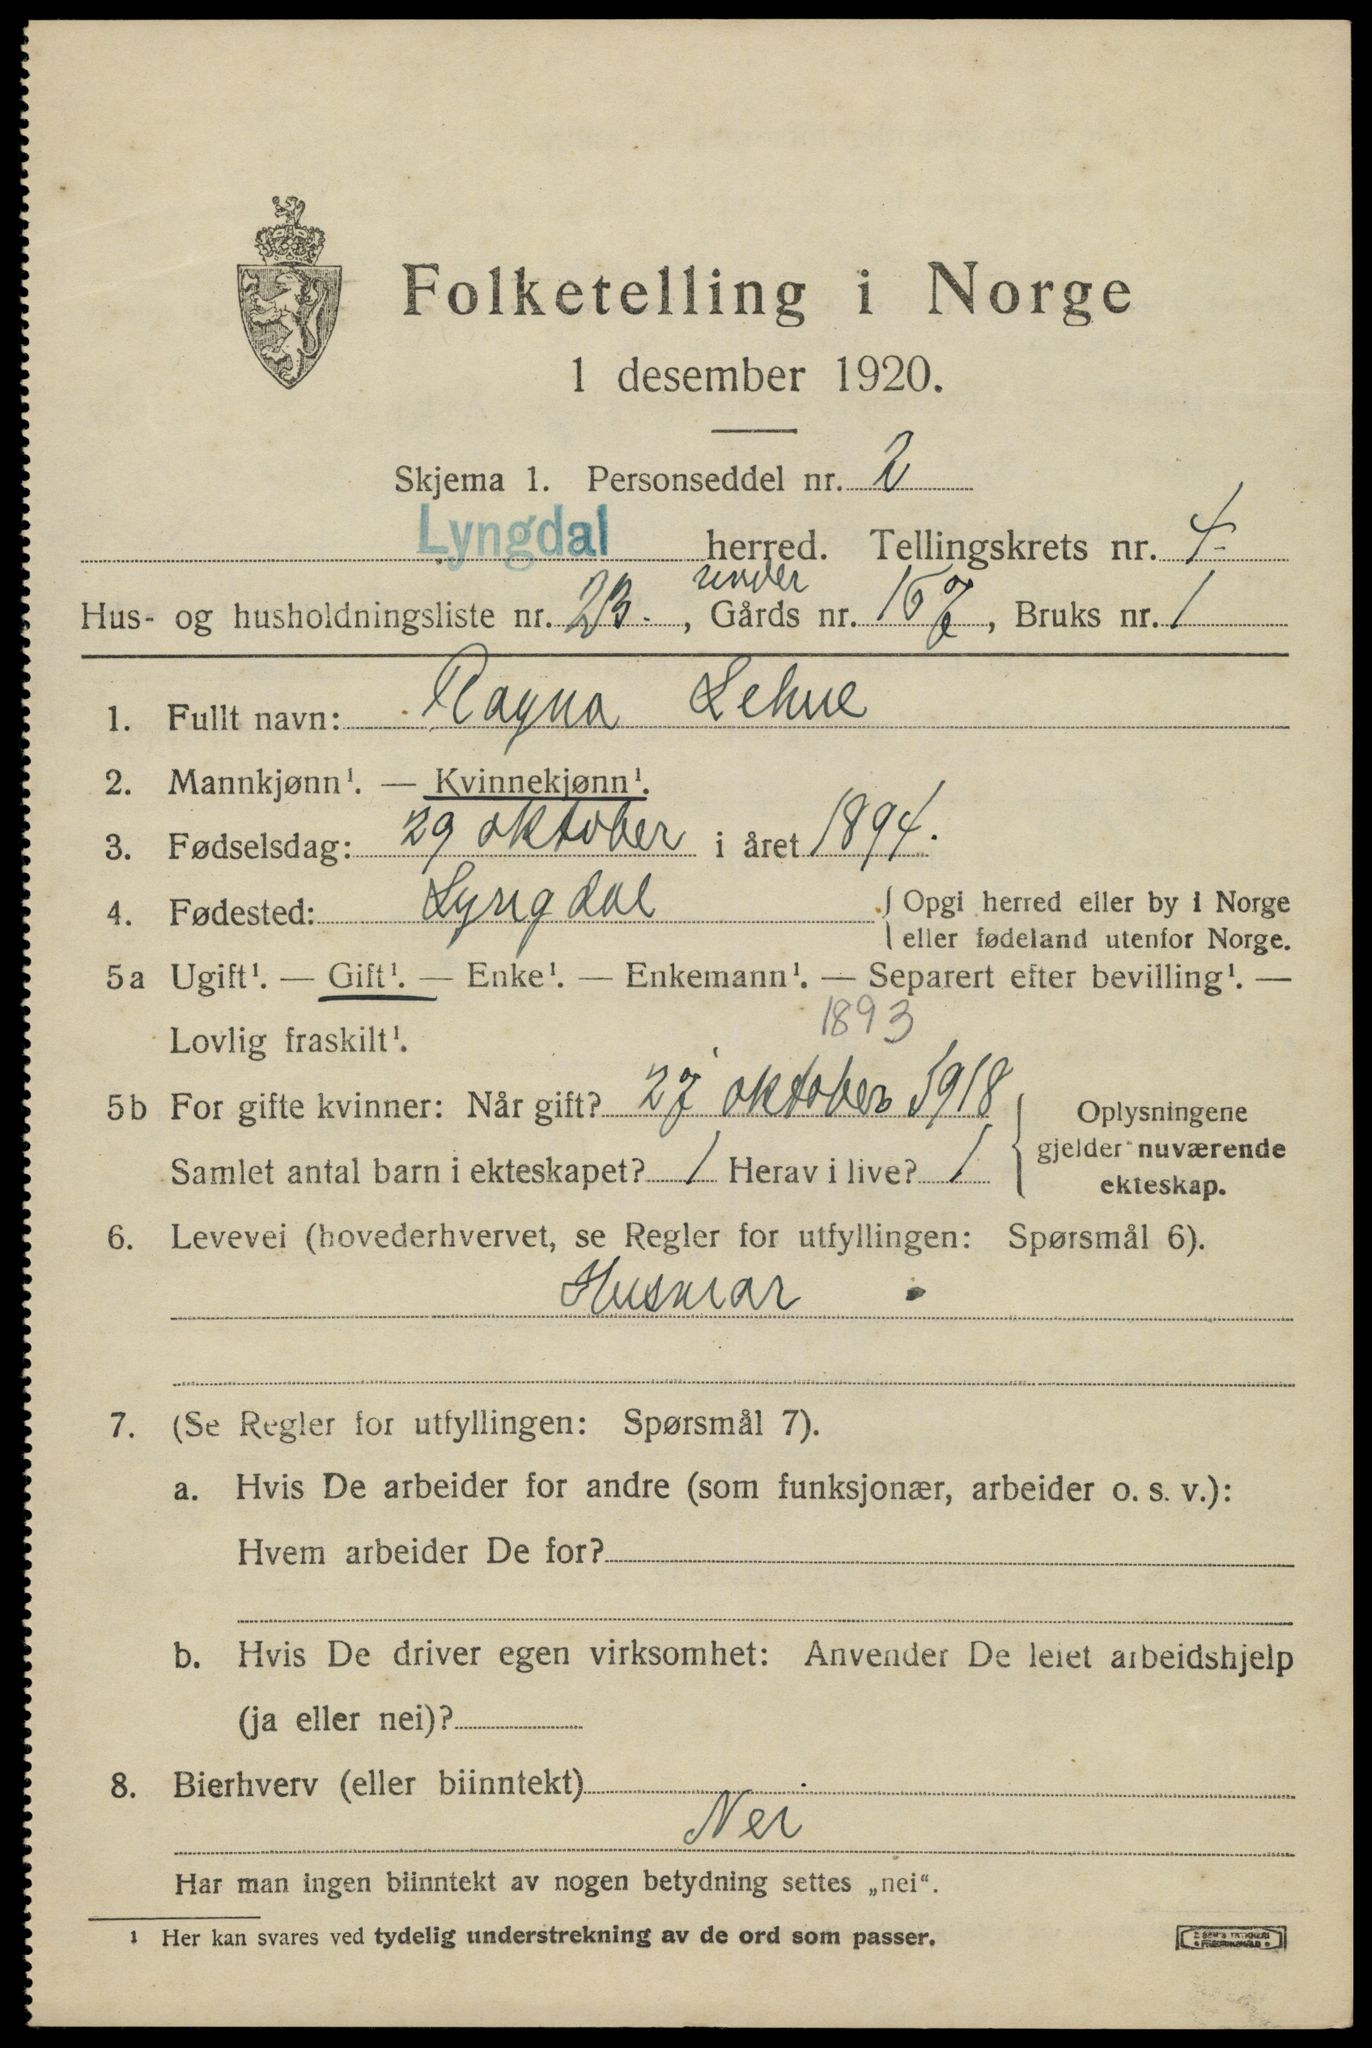 Folketelling i Norge
1 desember 1920.
Skjema 1. Personseddel nr. 2
Lyngdal herred. Tellingskrets nr. 4
under
Hus- og husholdningsliste nr. 23. , Gårds nr. 157, Bruks nr. 1
1. Fullt navn: Ragna Lehne
2. Mannkjønn¹. — Kvinnekjønn¹.
3. Fødselsdag: 29 oktober i året 1894.
4. Fødested: Lyngdal { Opgi herred eller by i Norge
eller fødeland utenfor Norge.
5a Ugift¹. — Gift¹. — Enke¹. — Enkemann¹. — Separert efter bevilling¹. —
1893
Lovlig fraskilt¹.
5b For gifte kvinner: Når gift? 27 oktober 1918
Samlet antal barn i ekteskapet? 1 Herav i live? 1
{ Oplysningene
gjelder nuværende
ekteskap.
6. Levevei (hovederhvervet, se Regler for utfyllingen: Spørsmål 6).
Husmor
7. (Se Regler for utfyllingen: Spørsmål 7).
a. Hvis De arbeider for andre (som funksjonær, arbeider o. s. v.):
Hvem arbeider De for?
b. Hvis De driver egen virksomhet: Anvender De leiet arbeidshjelp
(ja eller nei)?
8. Bierhverv (eller biinntekt)
Nei
Har man ingen biinntekt av nogen betydning settes „nei“.
¹ Her kan svares ved tydelig understrekning av de ord som passer.